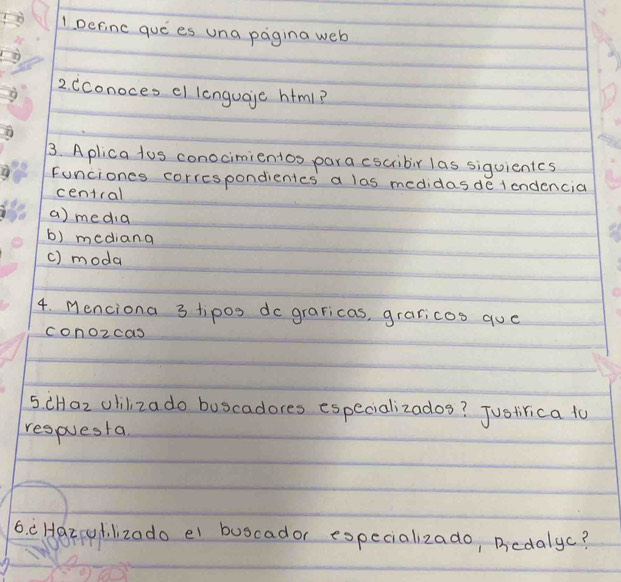 1. Define qué es una página web
2. ¿Conoces el lenguaje html?
3. Aplica tus conocimientos para escribir las siguientes
funciones correspondientes a las medidas de tendencia
central
a) media
b) mediana
c) moda
4. Menciona 3 tipos de graficas, graficos que
conozcas
5. ¿Haz utilizado buscadores especializados? Justifica tu
respuesta.
6. ¿Haz utilizado el buscador especializado, Redalyc?